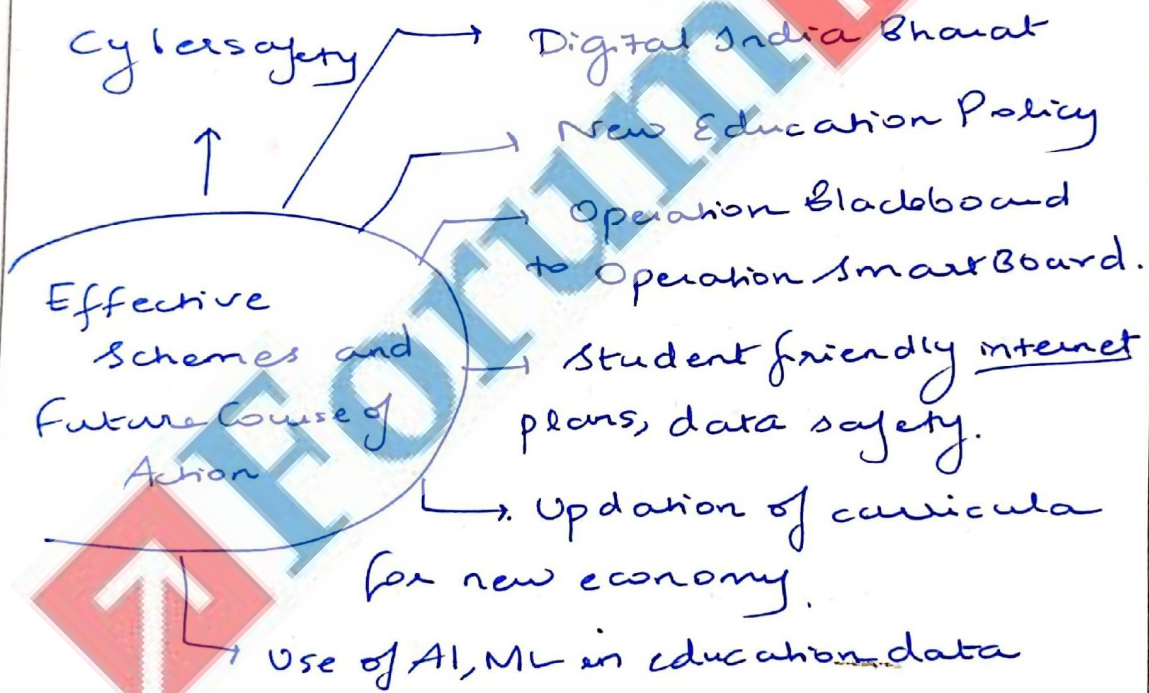 Cybersafety
Digital India Bharat
New Education Policy
Operation Blackboard
to Operation SmartBoard.
Effective
Schemes and
Future Course of
Action
Student friendly internet
plans, data safety.
Updation of curricula
for new economy.
Use of AI, ML in education data
Forum